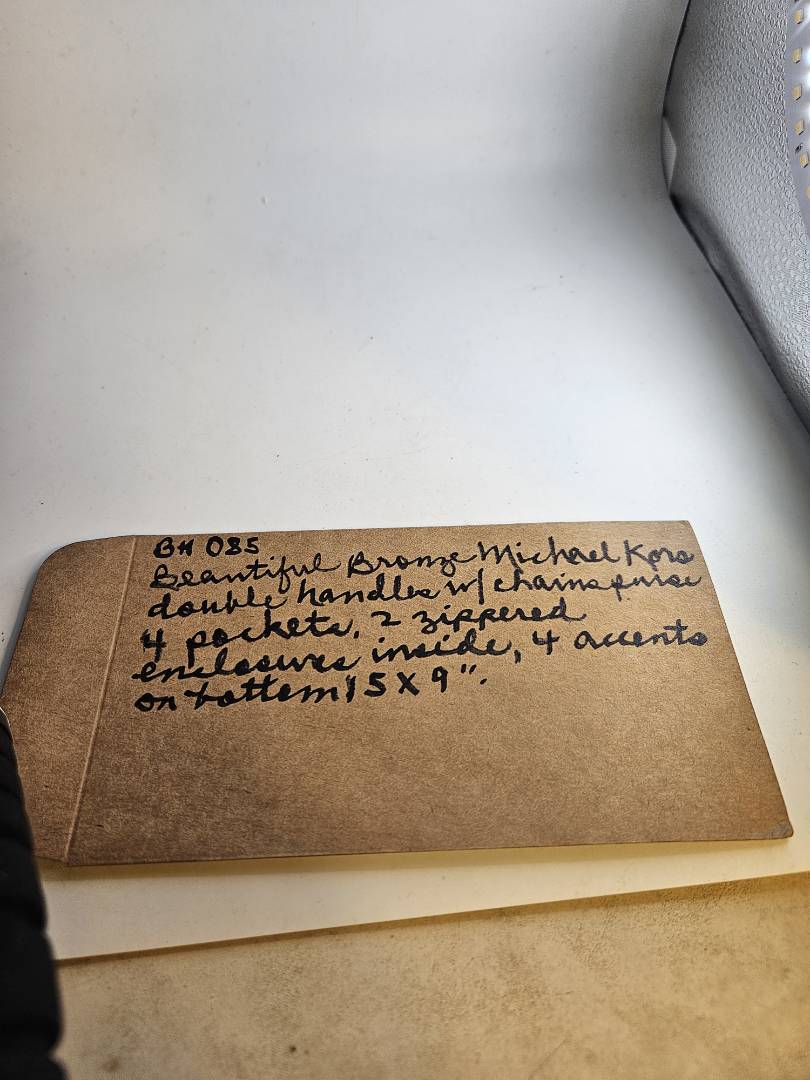 BH 085
Beautiful Bronze Michael Kors
double handles w/ chains purse
4 pockets, 2 zippered
enclosures inside, 4 accents
on bottem 15 X 9".